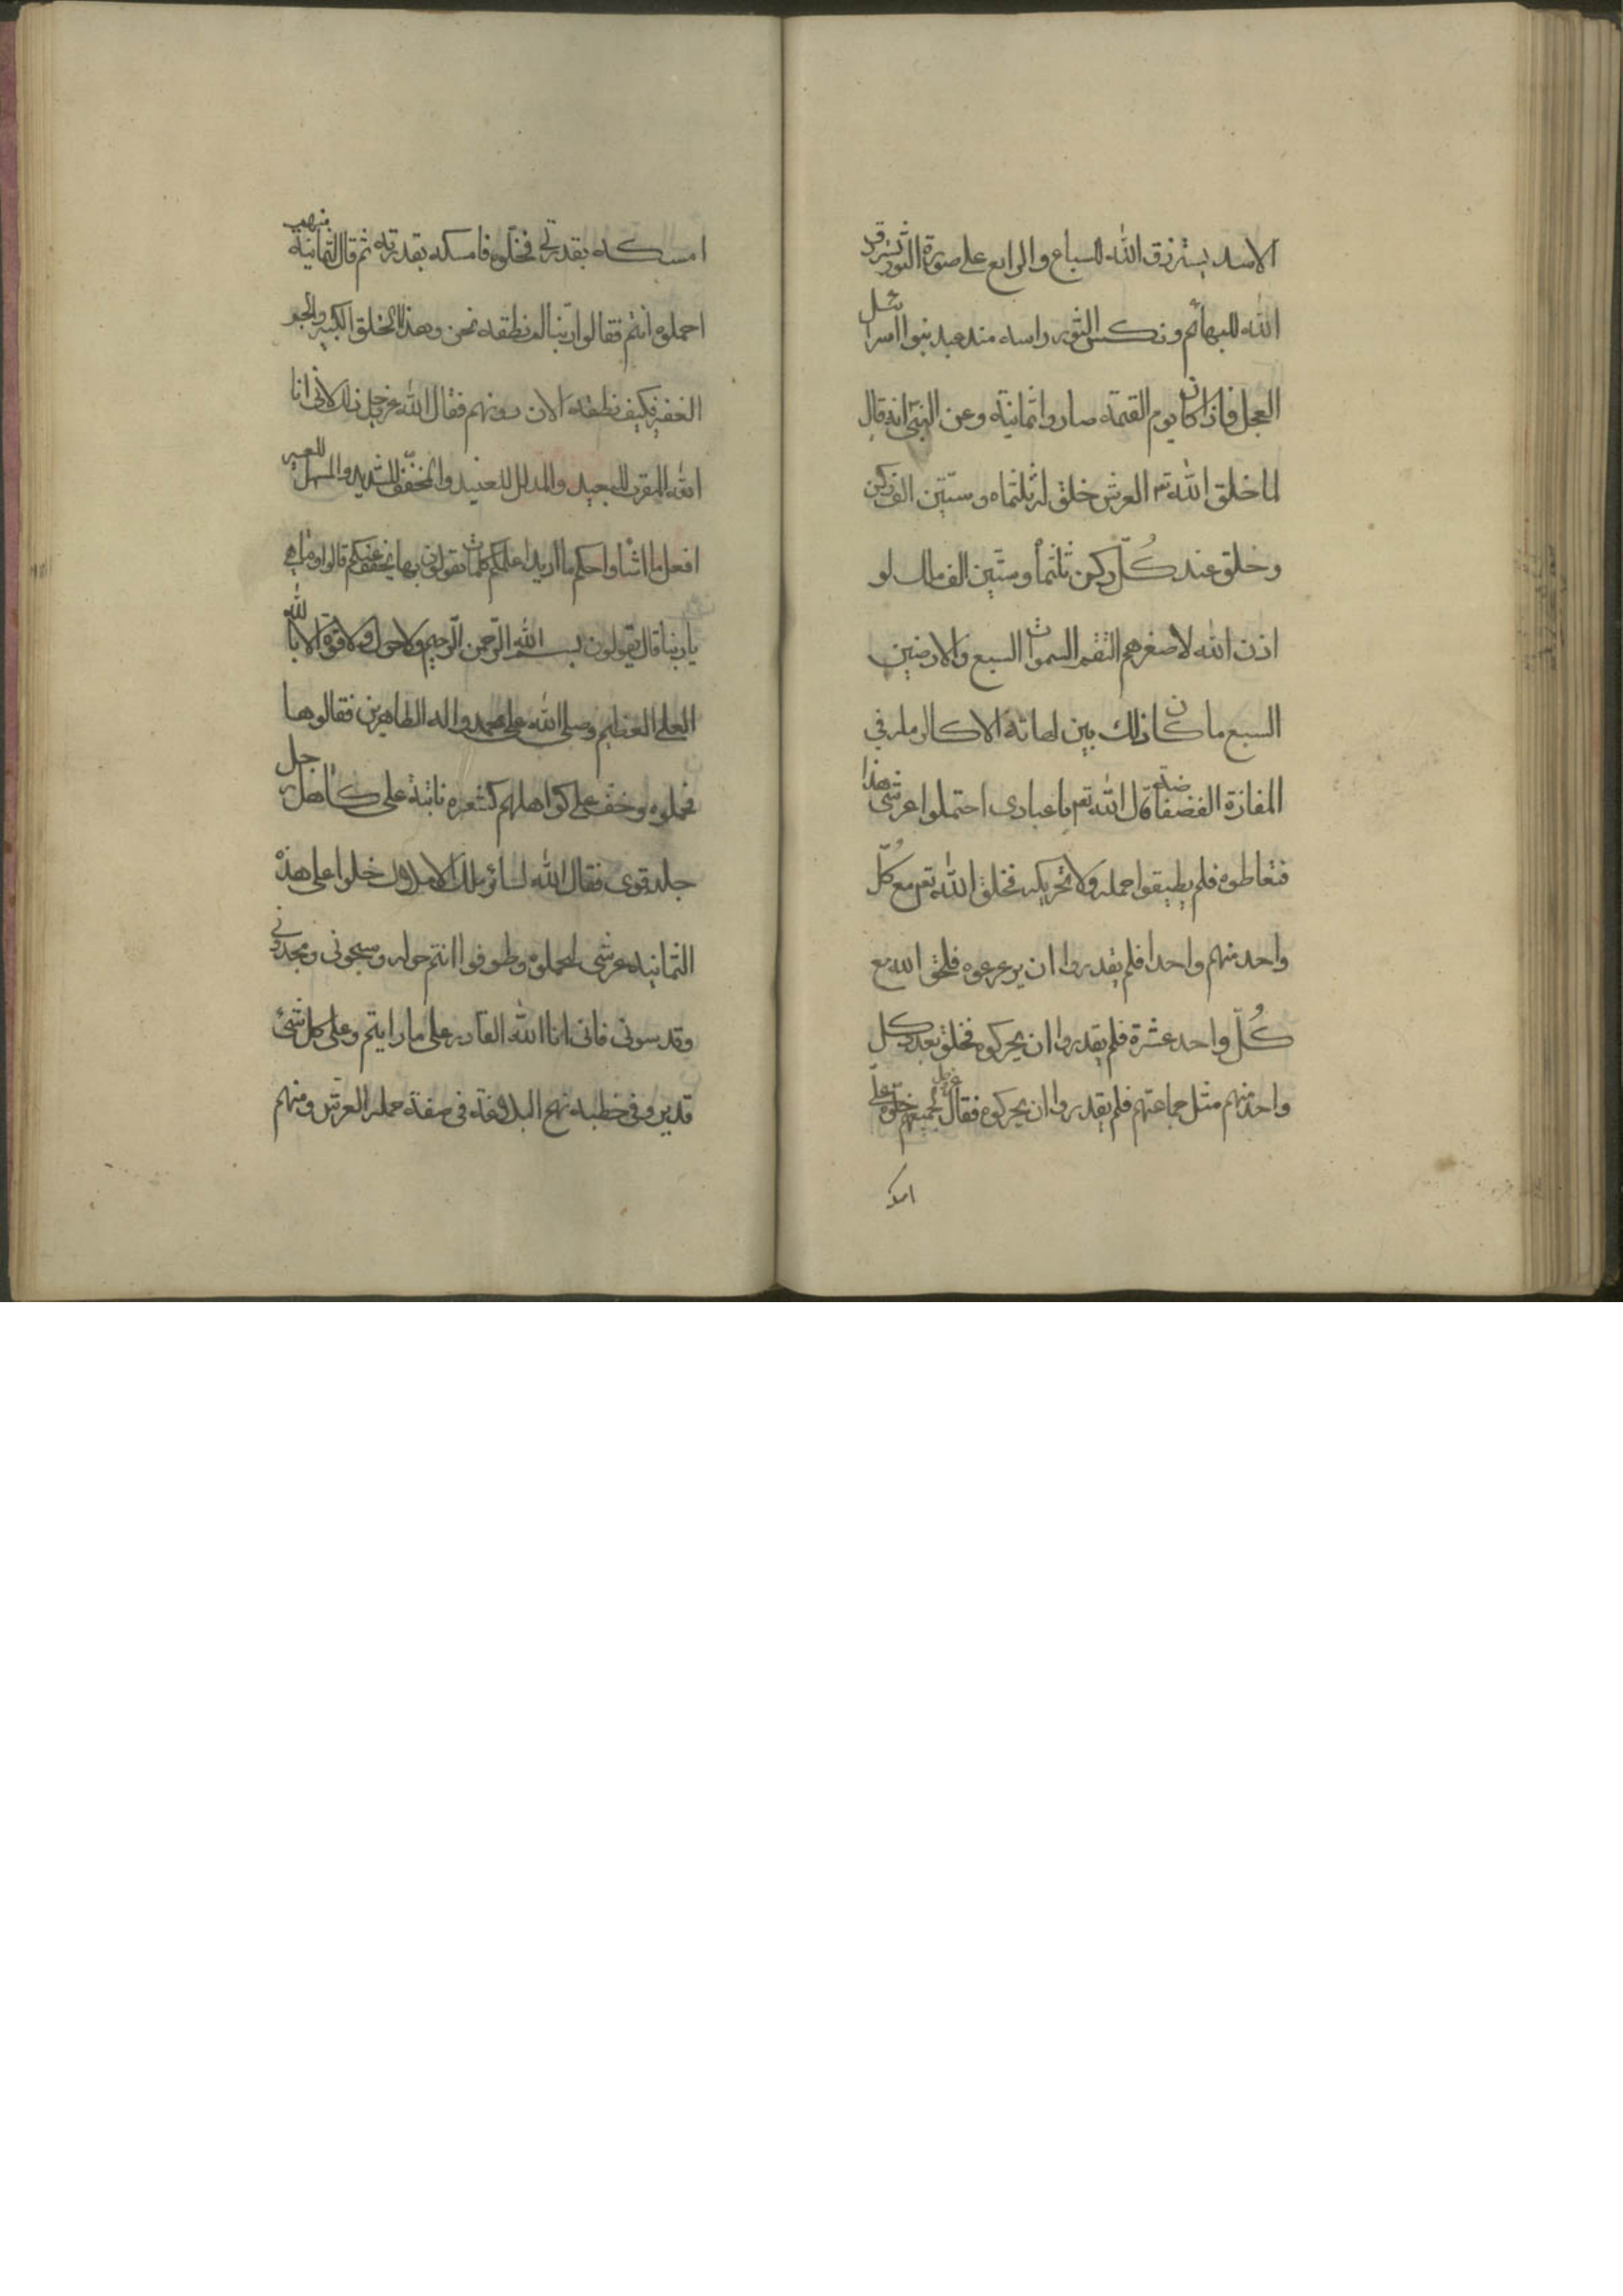 الاسد يسترزق الله للسباع والرابع على صورة الثور يسترزق
الله للبهائم ونكس الثور راسه منذ عبد بنوا اسرائيل
العجل فاذا كان يوم القيمة صاروا ثمانية وعن النبي انه قال
لما خلق الله تع العرش خلق له ثلثماه وستين الف ركن
وخلق عند كُلّ ركن ثلثمأ وستين الف ملك لو
اذن الله لاصغرهم التقم السموات السبع والارضين
السبع ما كان ذلك بين لهاته الا كالرمل في
المفازة الفضفاضة قال الله تع يا عبادى احتملوا عرشى هذا
فتعاطوه فلم يطيقوا حمله ولا تحريكه فخلق الله تع مع كُلّ
واحد منهم واحدا فلم يقدروا ان يزعزعوه فخلق الله مع
كُلّ واحد عشرة فلم يقدروا ان يحركوه فخلق بعدد كل
واحد منهم مثل جماعتهم فلم يقدروا ان يحركوه فقال عز وجل لجميعهم خلّوه علىّ
امسكه
امسكه بقدرتى فخلّوه فامسكه بقدرته ثم قال لثمانية منهم
احملوه انتم فقالوا ربنا لم نطقه نحن وهذا الخلق الكثير والجم
الغفير فكيف نطقه الان دونهم فقال الله عز وجل ذلك لانى انا
الله المقرب للبعيد والمذلل للعنيد والمخفّف للشديد والمسهل للعسير
افعل ما اشاء واحكم ما اريد اعلمكم كلمات تقولون بها يخفف عنكم قالوا وما هى
يا ربنا قال تقولون بسم الله الرّحمن الرّحيم ولا حول ولا قوة الا بالله
العلى العظيم وصلى الله على محمد واله الطاهرين فقالوها
فحملوه وخفّ على كواهلهم كشعرة نابتة على كاهل رجل
جلد قوى فقال الله لسائر تلك الاملاك خلوا على هذه
الثمانية عرشى ليحملوه وطوفوا انتم حوله وسبحونى ومجدونى
وقدسونى فانى انا الله القادر على ما رايتم وعلى كل شئ
قدير وفى خطبه نهج البلاغة فى صفة حملة العرش ومنهم